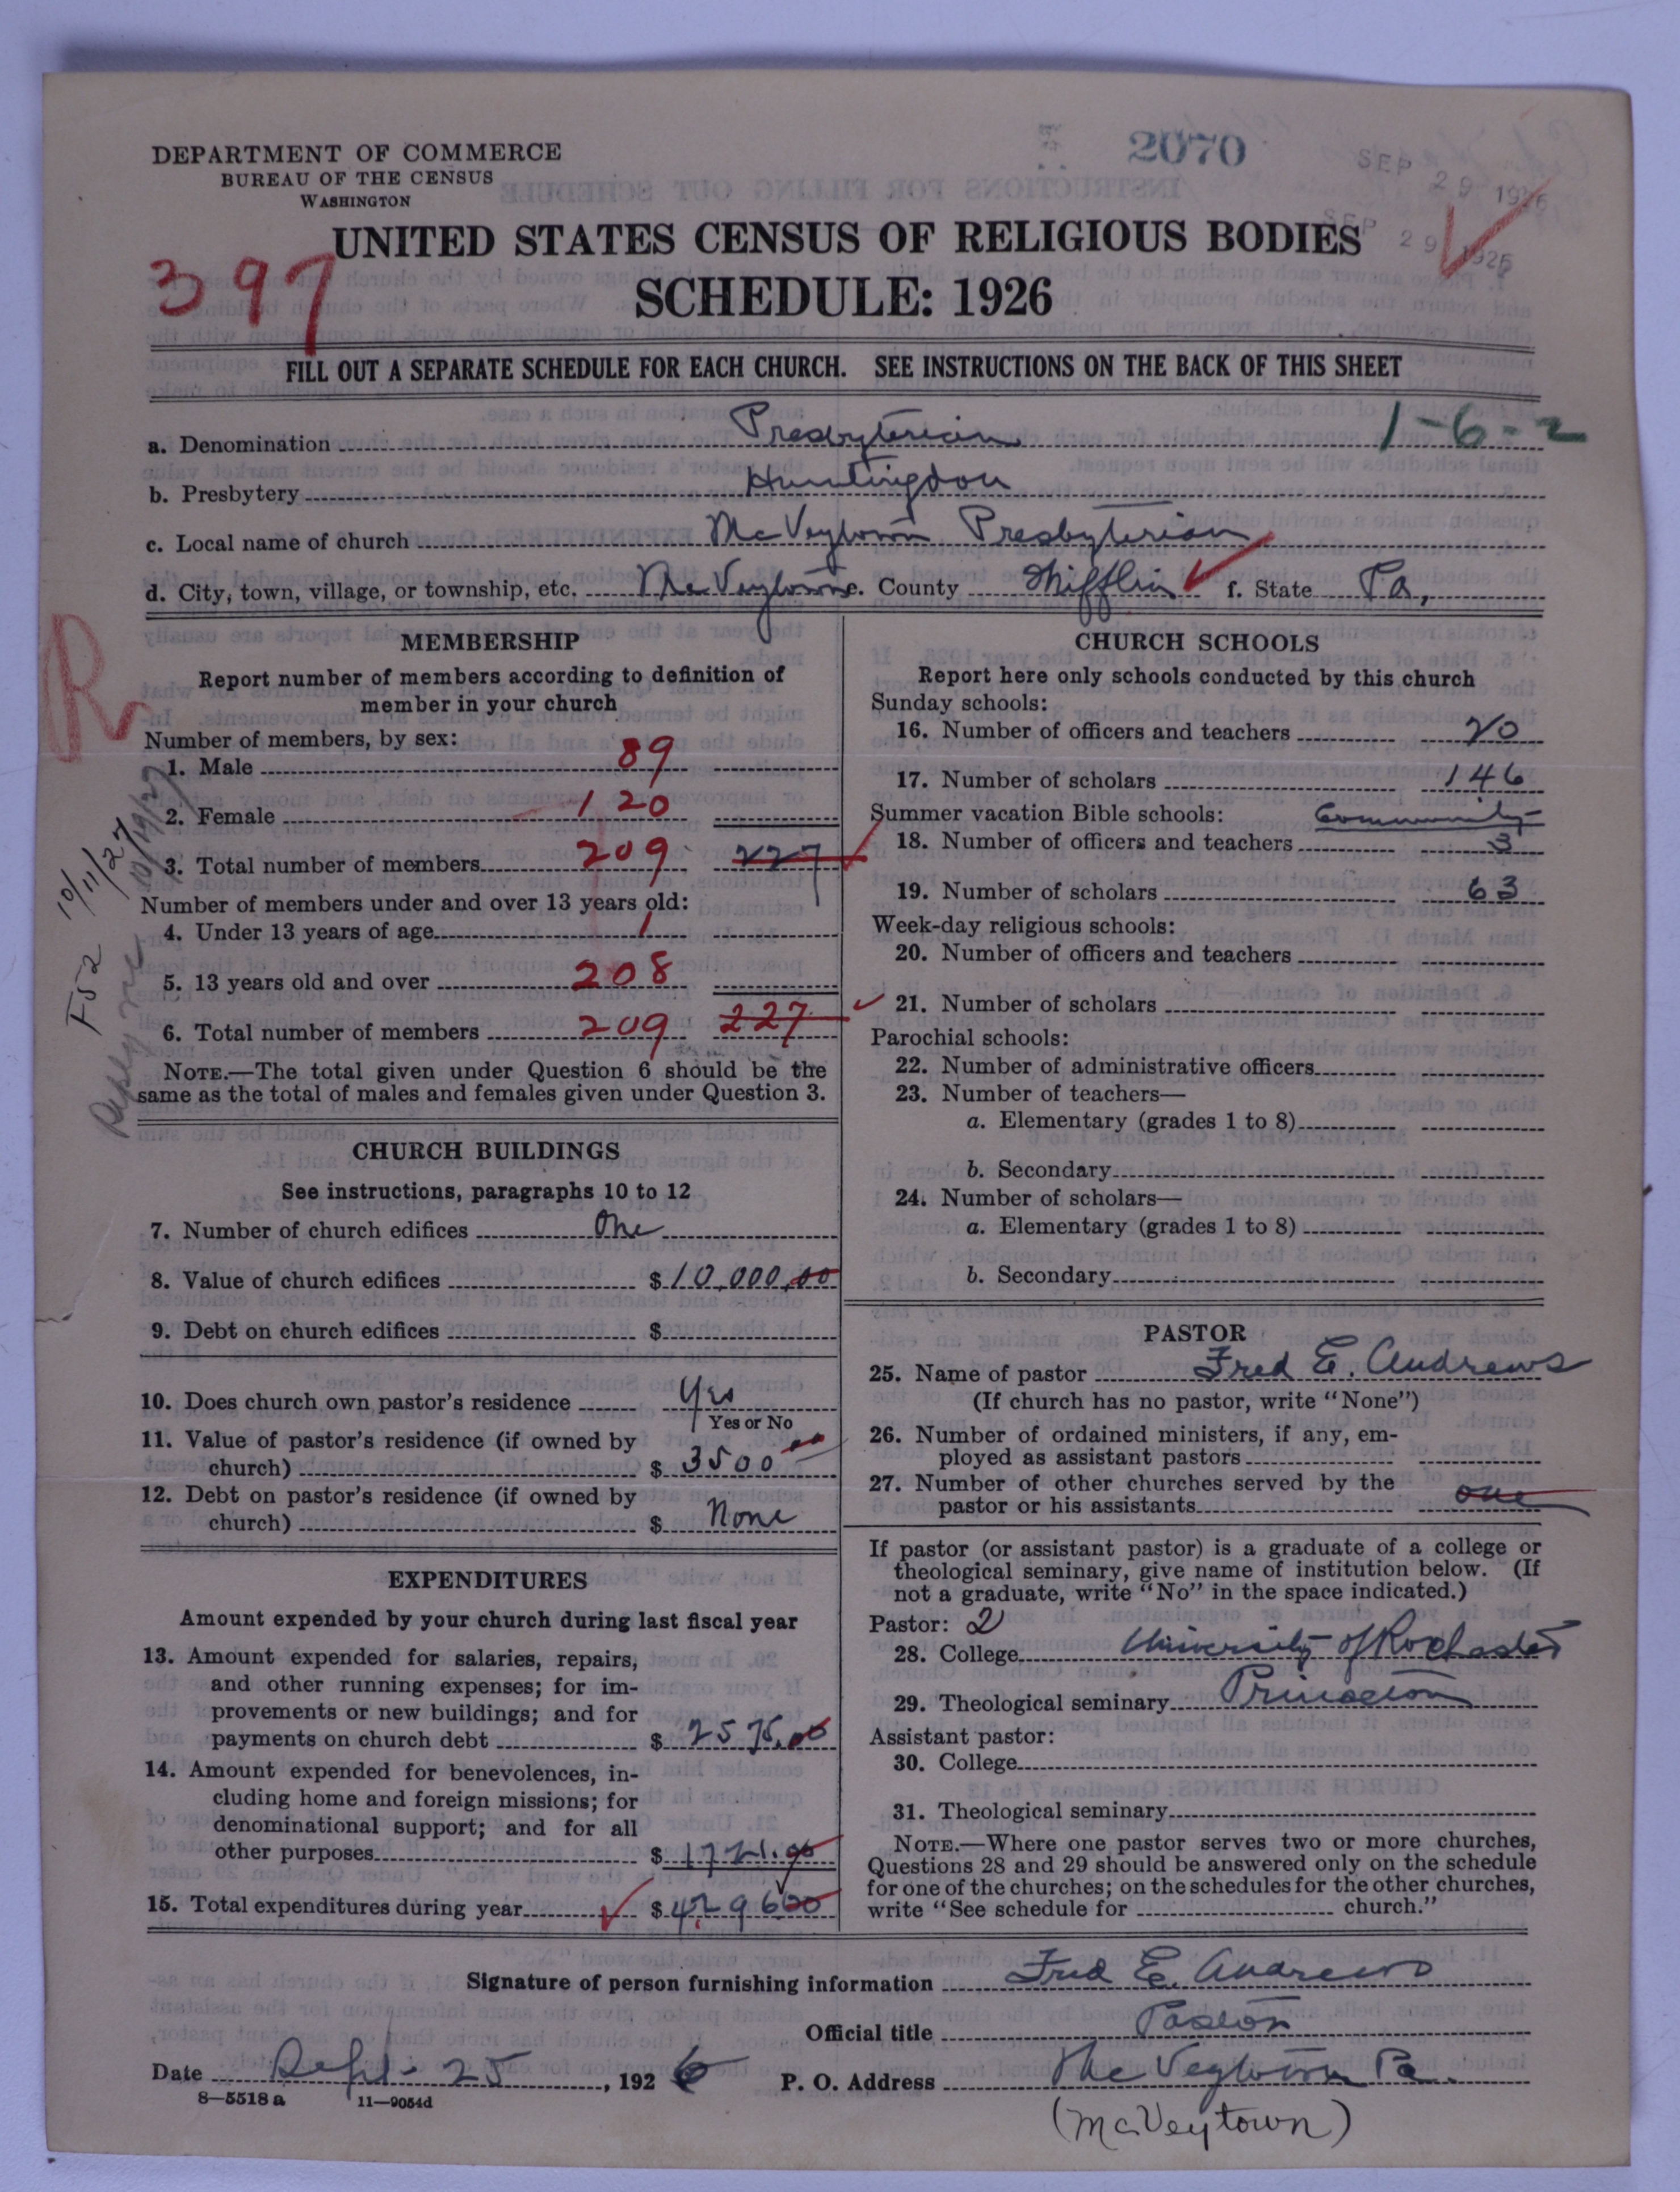 DEPARTMENT OF COMMERCE
BUREAU OF THE CENSUS
WASHINGTON
2070
SEP 29 1926
SEP 29 1926
397
UNITED STATES CENSUS OF RELIGIOUS BODIES
SCHEDULE: 1926
FILL OUT A SEPARATE SCHEDULE FOR EACH CHURCH. SEE INSTRUCTIONS ON THE BACK OF THIS SHEET
1-6-2
a. Denomination Presbyterian
b. Presbytery Huntingdon
c. Local name of church McVeytown Presbyterian
d. City, town, village, or township, etc. McVeytown e. County Mifflin f. State Pa,
R
F52 10/11/27
Reply rec 10/19/27
MEMBERSHIP
Report number of members according to definition of
member in your church
Number of members, by sex:
1. Male 89
2. Female 120
3. Total number of members 209 227
Number of members under and over 13 years old:
4. Under 13 years of age 1
5. 13 years old and over 208
6. Total number of members 209 227
NOTE.—The total given under Question 6 should be the
same as the total of males and females given under Question 3.
CHURCH BUILDINGS
See instructions, paragraphs 10 to 12
7. Number of church edifices One
8. Value of church edifices $10,000,00
9. Debt on church edifices $
10. Does church own pastor's residence Yes
Yes or No
11. Value of pastor's residence (if owned by
church) $ 3500 00
12. Debt on pastor's residence (if owned by
church) $ None
EXPENDITURES
Amount expended by your church during last fiscal year
13. Amount expended for salaries, repairs,
and other running expenses; for im-
provements or new buildings; and for
payments on church debt $ 2575.00
14. Amount expended for benevolences, in-
cluding home and foreign missions; for
denominational support; and for all
other purposes $ 1721.00
15. Total expenditures during year $ 4296 00
CHURCH SCHOOLS
Report here only schools conducted by this church
Sunday schools:
16. Number of officers and teachers 20
17. Number of scholars 146
Summer vacation Bible schools: Community
18. Number of officers and teachers 3
19. Number of scholars 63
Week-day religious schools:
20. Number of officers and teachers
21. Number of scholars
Parochial schools:
22. Number of administrative officers
23. Number of teachers—
a. Elementary (grades 1 to 8)
b. Secondary
24. Number of scholars—
a. Elementary (grades 1 to 8)
b. Secondary
PASTOR
25. Name of pastor Fred E. Andrews
(If church has no pastor, write "None")
26. Number of ordained ministers, if any, em-
ployed as assistant pastors
27. Number of other churches served by the
pastor or his assistants one
If pastor (or assistant pastor) is a graduate of a college or
theological seminary, give name of institution below. (If
not a graduate, write "No" in the space indicated.)
Pastor: 2
28. College University of Rochester
29. Theological seminary Princeton
Assistant pastor:
30. College
31. Theological seminary
NOTE.—Where one pastor serves two or more churches,
Questions 28 and 29 should be answered only on the schedule
for one of the churches; on the schedules for the other churches,
write "See schedule for church."
Signature of person furnishing information Fred E. Andrews
Official title Pastor
Date Sept. 25, 1926 P. O. Address McVeytown Pa.
8—5518 a 11—9054d
(McVeytown)